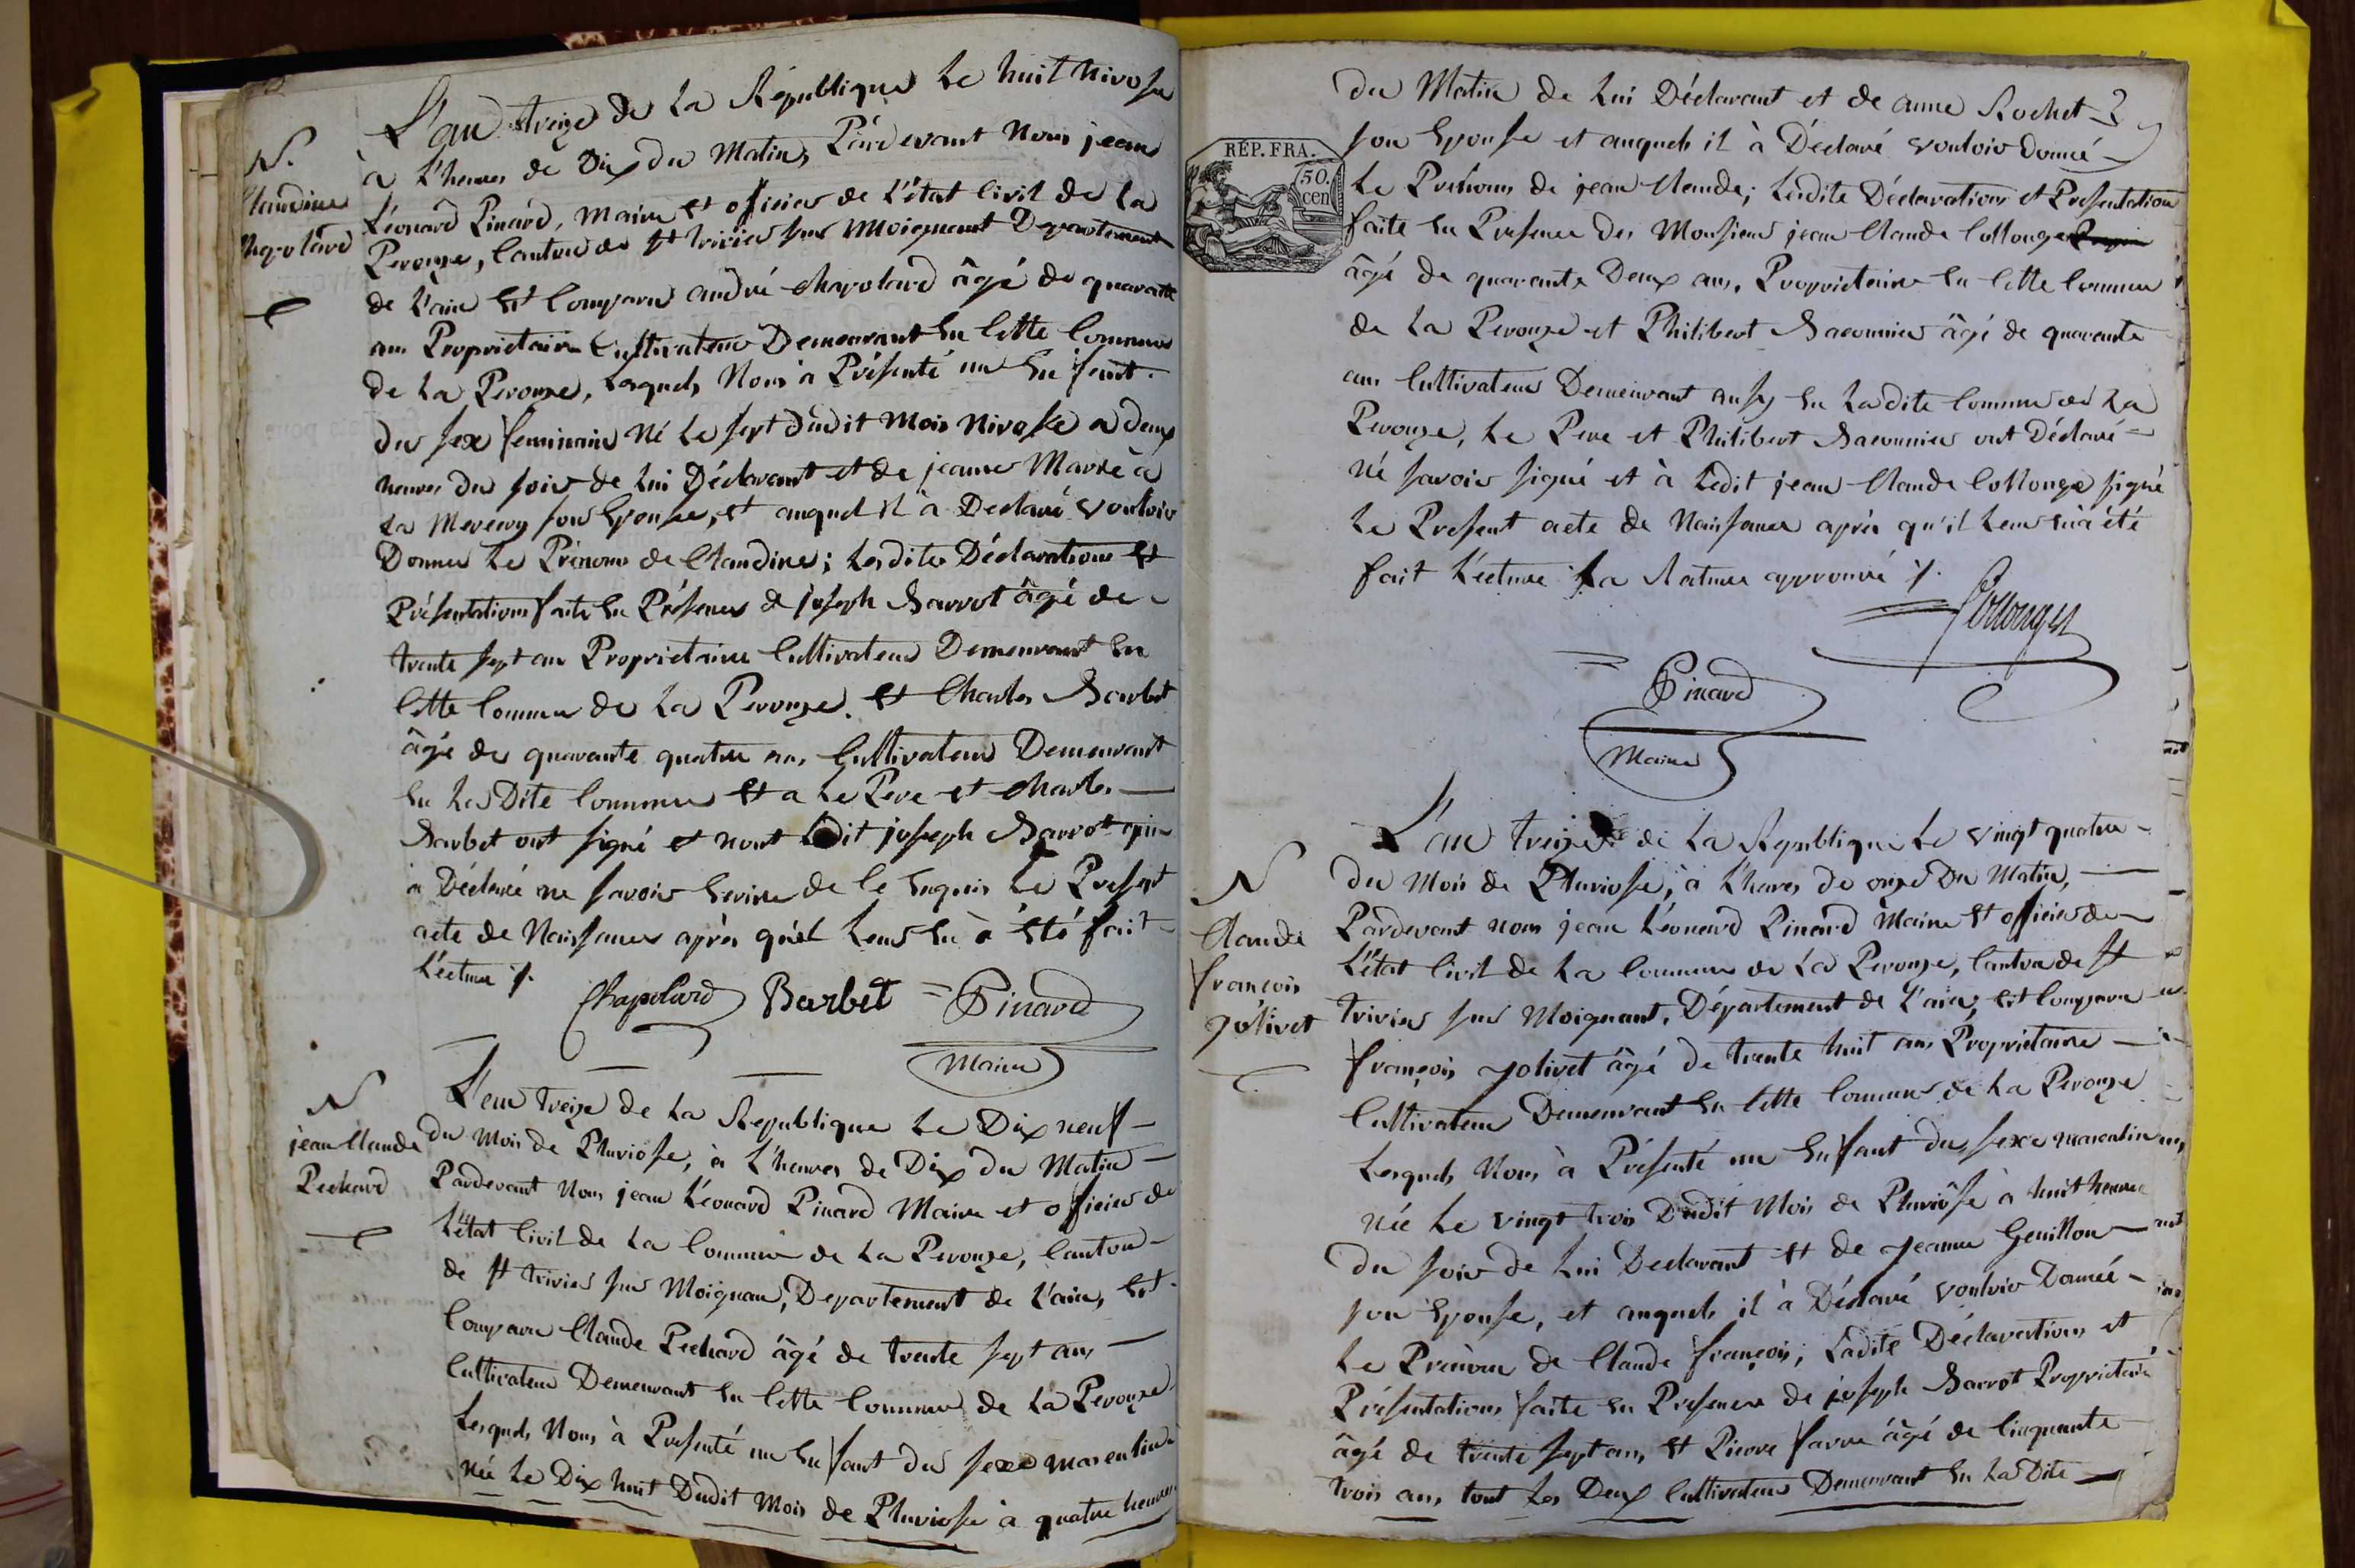 N.
Claudine
Chapolard
L'an treize de La République Le huit Nivose
à L'heures de Dix du Matin, Pardevant Nous jean
Léonard Pinard, Maire et oficier de L'état Civil de La
Perouze, Canton de St trivier sur Moignant Departement
de L'ain Est Comparu andré Chapolard âgé de quarante
ans Proprietaire Cultivateur Demeurant En Cette Commune
de La Perouze, Lesquels Nous à Présenté un En fent.
du sex feminain Né Le sept dudit Mois Nivose a deux
heures du soir de Lui Déclarant et de jeanne
La son Epouse, et auquel il à Declaré vouloir
Donner Le Prénoms de Claudine; Lesdites Déclarations Et
Présentations faite En Présence de joseph Barrot âgé de
trente sept ans Proprietaire Cultivateur Demeurant En
Cette Commune de La Perouze. Et Charles Barbet
âgé de quarante quatre ans, Cultivateur Demeurant
En La Dite Commune Et a Le Pere et Charles
Barbet ont signé et nont Ledit joseph Barrot qui
a Déclaré ne savoir Ecrire de Ce Enquis Le Present
acte de Naissances après quèl Leur En à Eté fait
L'ecture ./.
Chapolard Barbet = Pinard
Maire
N
jean Claude
Pechard
L'an treize de La Republique Le Dix neuf
du Mois de Pluviose, à L'heures de Dix du Matin
Pardevant Nous jean Léonard Pinard Maire et oficier de
L'état Civil de La Commune de La Perouze, Canton
de St trivier sur Moignan, Departement de L'ain, Est
Comparu Claude Pechard âgé de trente sept ans
Cultivateur Demeurant En Cette Commune de La Perouze
Lesquels Nous à Presenté un En fant du sexe masculin
née Le Dix huit Dudit Mois de Pluviose à quatre heures
du Matin de Lui Déclarant et de anne Rochet
son Epouse et auquels il à Déclaré vouloir Donné
RÉP. FRA.
50.
cen
Le Prenoms de jean Claude; Lesdite Déclarations et Presentation
faite En Presence des Monsieur jean Claude Collonge
âgé de quarante Deux ans, Proprietaire En Cette Commune
de La Perouze et Philibert Saconnier âgé de quarante
ans Cultivateur Demeurant ausy En Ladite Commune de La
Perouze, Le Pere et Philibert Saconnier ont Déclaré
né savoir signé et à Ledit jean Claude Collonge signé
Le Present acte de Naissance après qu'il Leur En à été
fait L'ecture La Rature approuvé ./.
Collonges
Pinard
Maire
N
Claude
françois
jolivet
L'an treize de La Republique Le vingt quatre
du Mois de Pluviose, à L'heures de onze Du Matin,
Pardevant nous jean Léonard Pinard Maire Et oficier de
L'état Civil de La Commune de La Perouze, Canton de St
trivier sur Moignant, Département de L'ain, Est Comparu
françois jolivet âgé de trente huit ans Propriétaire
Cultivateur Demeurant En Cette Commune de La Perouze
Lesquels Nous à Présenté un En fant du sexe masculin
née Le vingt trois Dudit Mois de Pluviôse à huit heures
Du soir de Lui Declarant Et de jeanne Genillon
son Epouse, et auquels il à Déclaré vouloir Donnée
Le Prénom de Claude françois; Ladite Déclarations et
Présentations faite En Presence de joseph Barrot Proprietaire
âgé de trente sept ans, Et Pierre farre âgé de Cinquante
trois ans, tout Les Deux Cultivateur Demeurant En La Dite